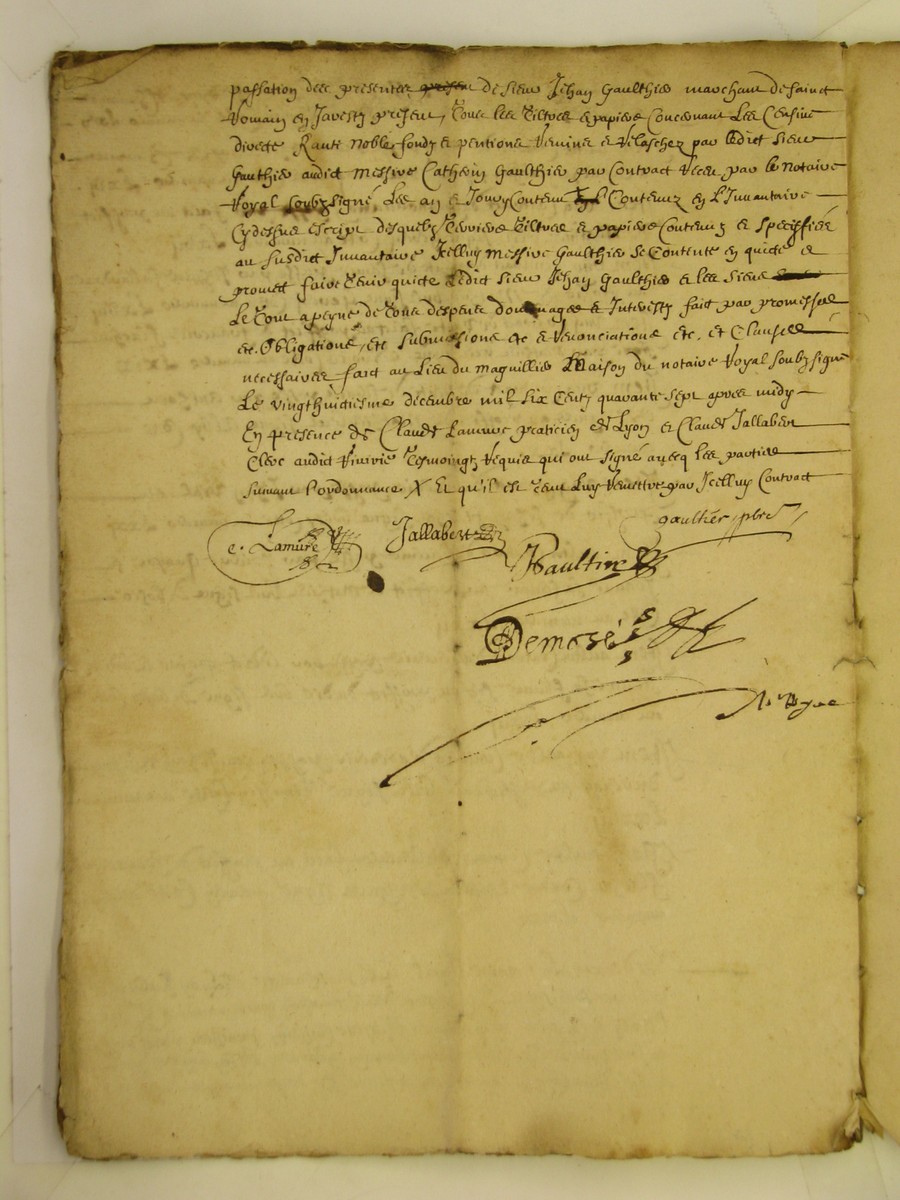 passation des presentes de sieur Jehan Gaulthier marchant de sainct
Romain en Jarestz present, Tous les tiltres & papiers Concernant les Censive
directe Rante noble fondz & pentions Remins & Relaschez par ledict sieur
Gauthier audict messire Gaulthier par Contract receu par le notaire
Royal soubzsigné, les an & Jour Contenu Contenuz en l'Innantaire
Cydessus escript desquelz Terriers tiltres & papiers Contenuz & speciffiés
au susdict Innantaire Icelluy messire Gaulthier se Contente en quicte &
promect faire tenir quicte ledict sieur Jehan Gaulthier & les siens
Le tout a peyne de tous despens dommages & Interestz faict par promesses
etc. Obligations, etc submissions etc & renonciations etc. et Clauses
necessaires faict au lieu du maguillier Maison du notaire Royal soubzsigné
Le vingthuictiesme decembre mil six Centz quarante sept apres midy
En presence de Claude Lamure praticien de Lyon & Claude Jallabert
Clerc audict tesmoingtz requis qui ont signé avecq les parties
suivant l'ordonnance X Et qu'il est tenu luy remettre par Icelluy Contract
gaultier pbre
C. Lamure Jallabert
JGaultier
Demoré